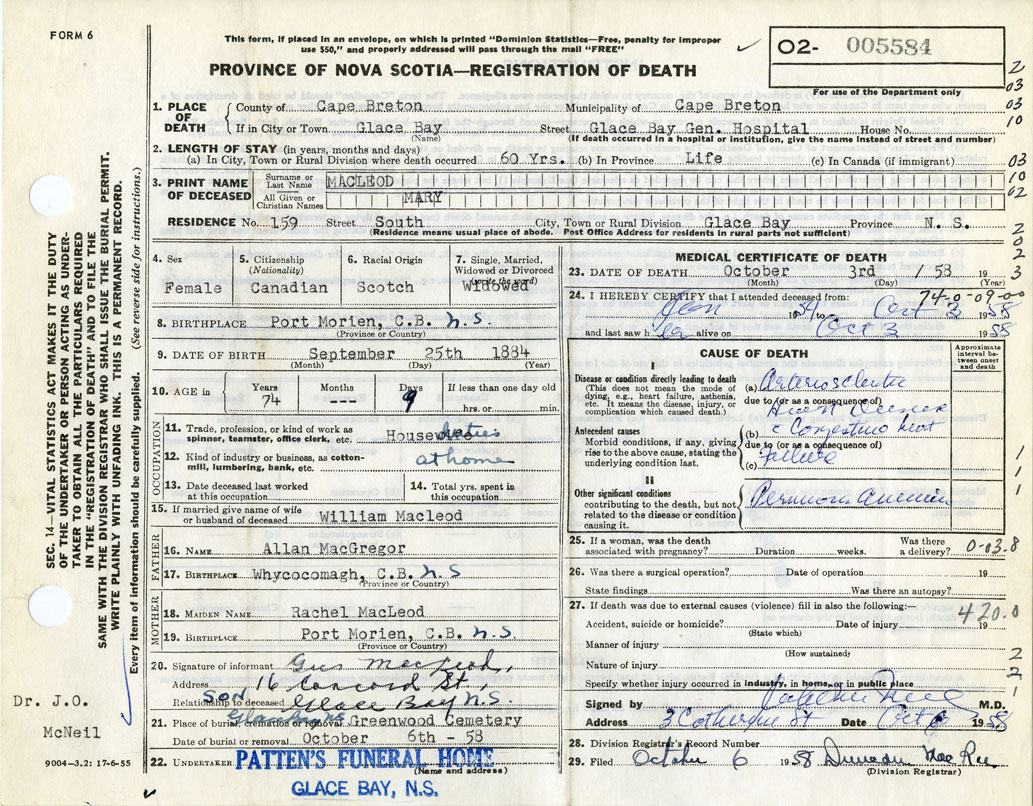 FORM 6
This form, if placed in an envelope, on which is printed "Dominion Statistics—Free, penalty for improper
use $50," and properly addressed will pass through the mail "FREE"
PROVINCE OF NOVA SCOTIA—REGISTRATION OF DEATH
02- 005584
For use of the Department only
SEC. 14—VITAL STATISTICS ACT MAKES IT THE DUTY
OF THE UNDERTAKER OR PERSON ACTING AS UNDER-
TAKER TO OBTAIN ALL THE PARTICULARS REQUIRED
IN THE "REGISTRATION OF DEATH" AND TO FILE THE
SAME WITH THE DIVISION REGISTRAR WHO SHALL ISSUE THE BURIAL PERMIT.
WRITE PLAINLY WITH UNFADING INK. THIS IS A PERMANENT RECORD.
Every item of information should be carefully supplied. (See reverse side for instructions.)
1. PLACE OF DEATH
County of Cape Breton Municipality of Cape Breton
If in City or Town Glace Bay Street Glace Bay Gen. Hospital House No.
(Name) (If death occurred in a hospital or institution, give the name instead of street and number)
2. LENGTH OF STAY (in years, months and days)
(a) In City, Town or Rural Division where death occurred 60 Yrs. (b) In Province Life (c) In Canada (if immigrant)
3. PRINT NAME OF DECEASED
Surname or Last Name MACLEOD
All Given or Christian Names MARY
RESIDENCE No. 159 Street South City, Town or Rural Division Glace Bay Province N. S.
(Residence means usual place of abode. Post Office Address for residents in rural parts not sufficient)
2
03
03
10
03
10
02
2
0
2
3
4. Sex
Female
5. Citizenship
(Nationality)
Canadian
6. Racial Origin
Scotch
7. Single, Married,
Widowed or Divorced
(write the word)
Widowed
8. BIRTHPLACE Port Morien, C.B. N.S.
(Province or Country)
9. DATE OF BIRTH September 25th 1884
(Month) (Day) (Year)
10. AGE in
Years
74
Months
---
Days
9
If less than one day old
hrs. or min.
OCCUPATION
11. Trade, profession, or kind of work as
spinner, teamster, office clerk, etc. Housewife duties
12. Kind of industry or business, as cotton-
mill, lumbering, bank, etc. at home
13. Date deceased last worked
at this occupation
14. Total yrs. spent in
this occupation
15. If married give name of wife
or husband of deceased William Macleod
FATHER
16. NAME Allan MacGregor
17. BIRTHPLACE Whycocomagh, C.B. N.S
(Province or Country)
MOTHER
18. MAIDEN NAME Rachel MacLeod
19. BIRTHPLACE Port Morien, C.B. N.S.
(Province or Country)
20. Signature of informant Gus Macleod,
Address 16 Concord St,
Relationship to deceased Son Glace Bay N.S.
21. Place of burial cremation or removal Glace Bay NS Greenwood Cemetery
Date of burial or removal October 6th - 58
22. UNDERTAKER PATTEN'S FUNERAL HOME
(Name and address)
GLACE BAY, N.S.
Dr. J.O.
McNeil
9004—3.2: 17-6-55
MEDICAL CERTIFICATE OF DEATH
23. DATE OF DEATH October 3rd / 58 19
(Month) (Day) (Year)
74-0-09-00
24. I HEREBY CERTIFY that I attended deceased from:
Jan 1954 to Oct 3 1958
and last saw her alive on Oct 3 1958
CAUSE OF DEATH
Approximate
interval be-
tween onset
and death
I
Disease or condition directly leading to death
(This does not mean the mode of
dying, e.g., heart failure, asthenia,
etc. It means the disease, injury, or
complication which caused death.)
(a) Arteriosclerotic
due to (or as a consequence of)
Heart Disease
Antecedent causes
Morbid conditions, if any, giving
rise to the above cause, stating the
underlying condition last.
(b) c Congestive heart
due to (or as a consequence of)
(c) failure
II
Other significant conditions
contributing to the death, but not
related to the disease or condition
causing it.
Pernicious anemia
1
1
1
25. If a woman, was the death
associated with pregnancy? Duration weeks. Was there
a delivery?
0-03.8
26. Was there a surgical operation? Date of operation 19
State findings Was there an autopsy?
27. If death was due to external causes (violence) fill in also the following:—
420.0
Accident, suicide or homicide? Date of injury 19
(State which)
Manner of injury
(How sustained)
Nature of injury
Specify whether injury occurred in industry, in home, or in public place
2
2
1
Signed by M.D.
Address 3 Catherine St Date Oct 6 1958
28. Division Registrar's Record Number
29. Filed October 6 1958 Duncan MacRae
(Division Registrar)